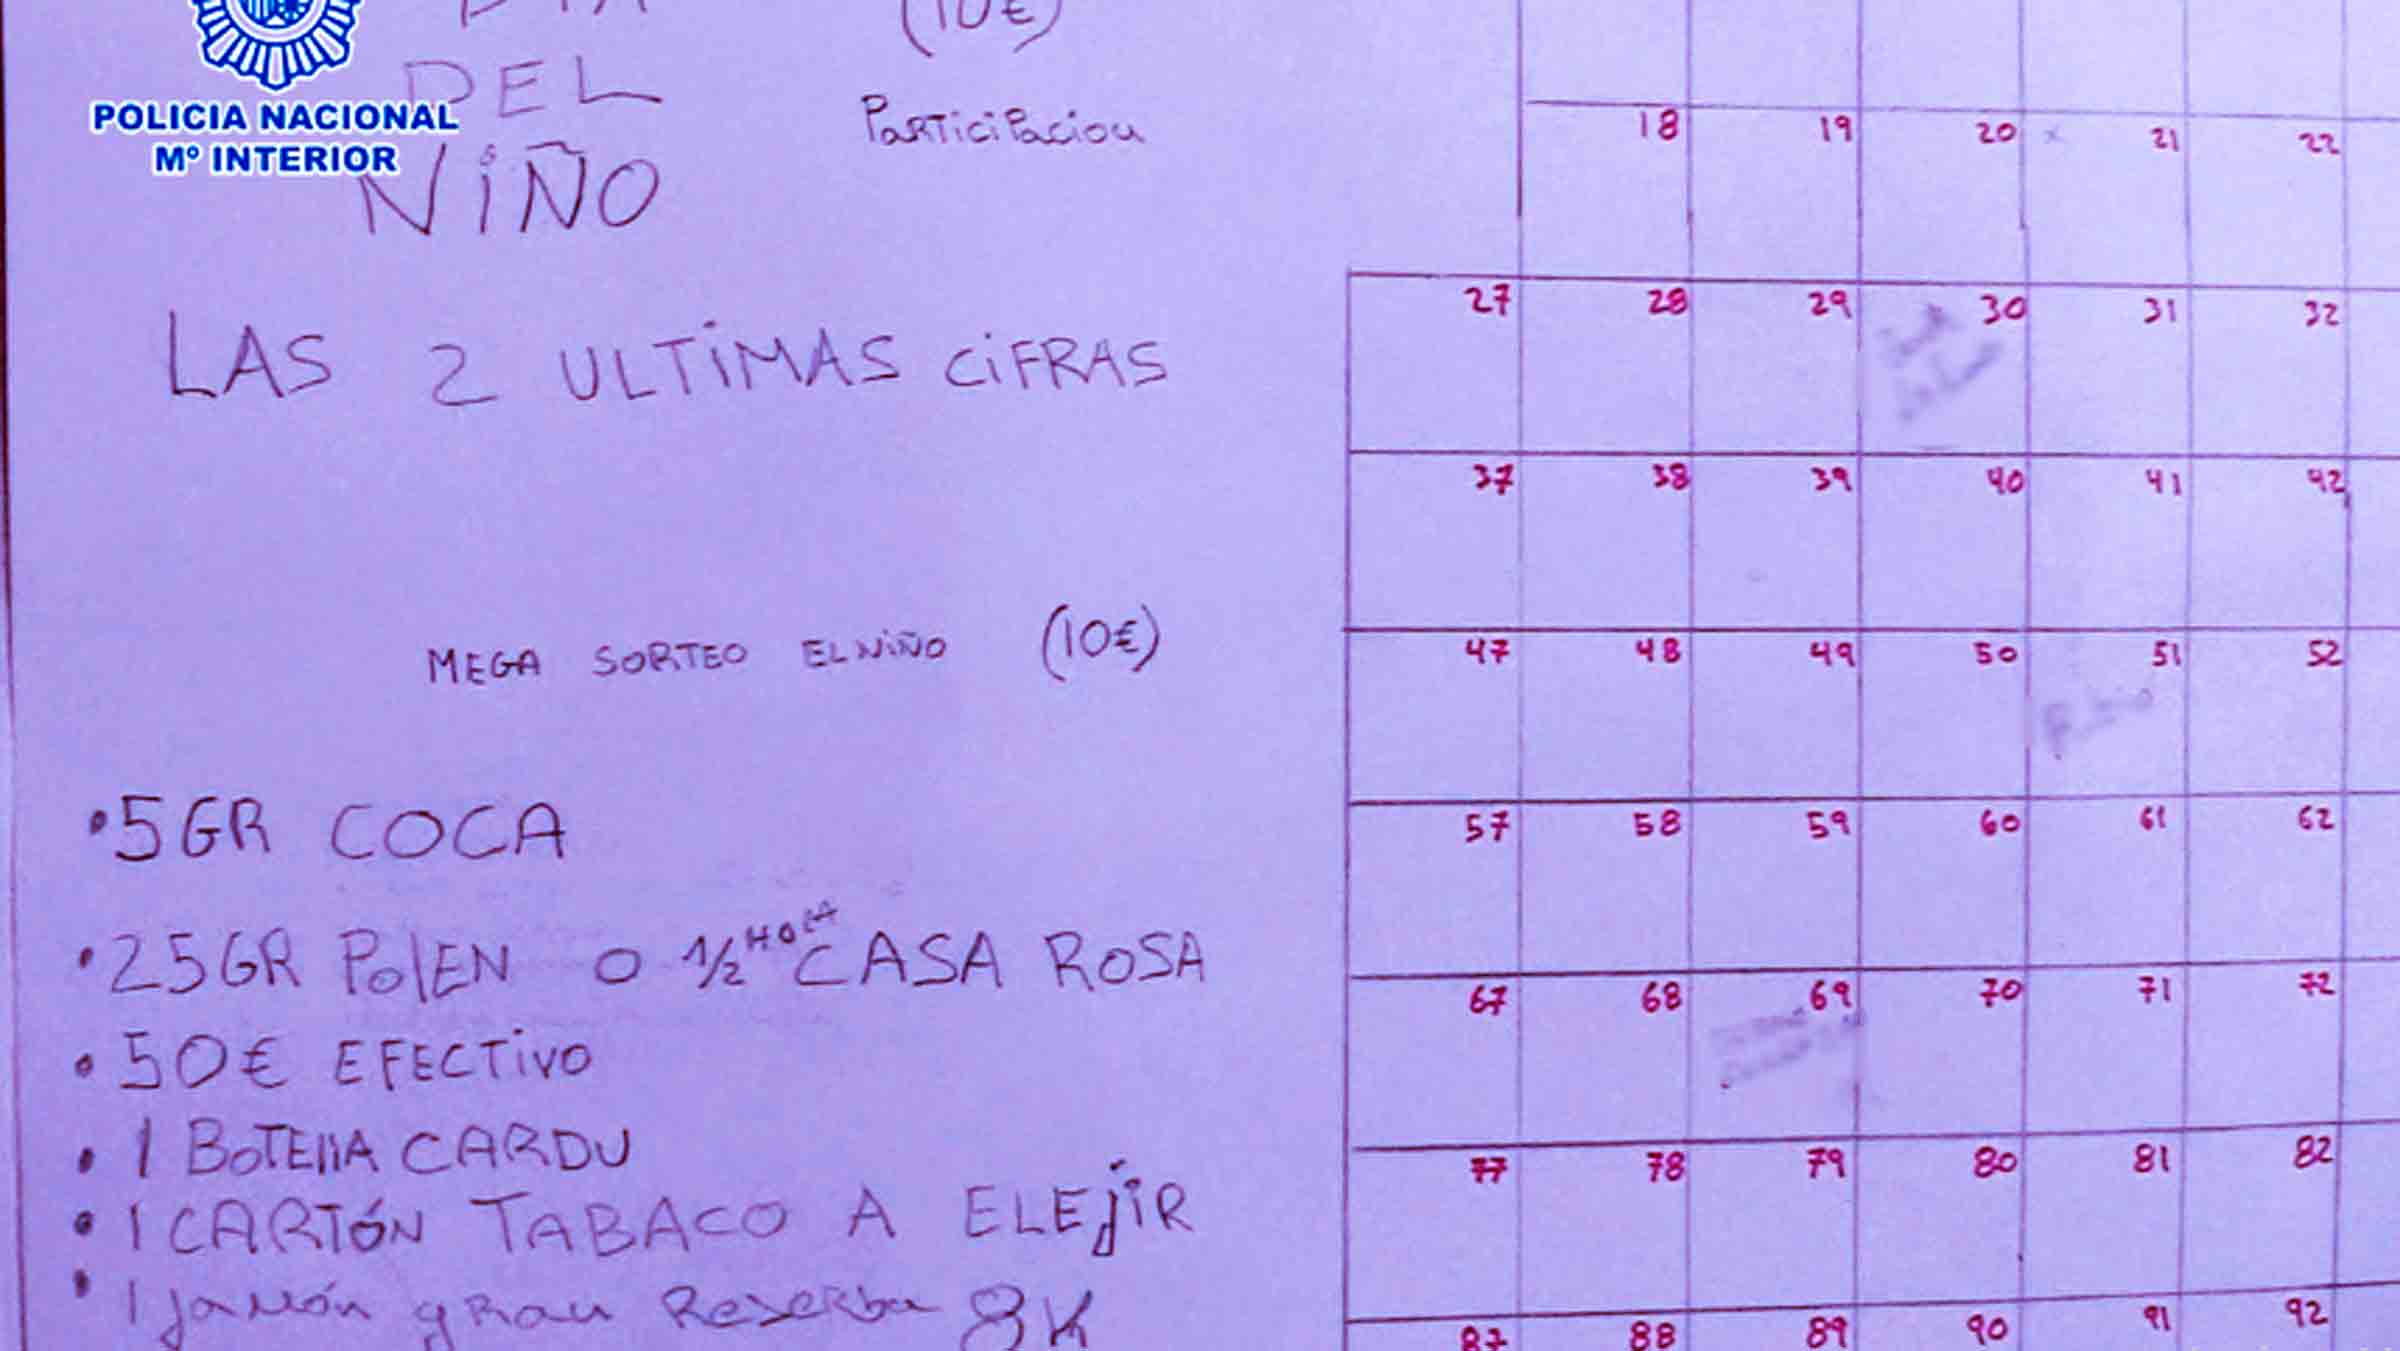 (10€)
DEL
POLICIA NACIONAL
Mº INTERIOR
NiÑO
ParTiciPacioN
LAS 2 ULTiMAS CiFRAS
MEGA SORTEO EL NiÑO (10€)
•5GR COCA
•25GR PolEN O 1/2 HOCA CASA ROSA
•50€ EFECTiVO
•1 BoTEllA CARDU
•1 CARTÓN TABACO A ELEjiR
•1 jamón gran Reserba 8K
18 19 20 x 21 22
27 28 29 30 31 32
37 38 39 40 41 42
47 48 49 50 51 52
57 58 59 60 61 62
67 68 69 70 71 72
77 78 79 80 81 82
87 88 89 90 91 92